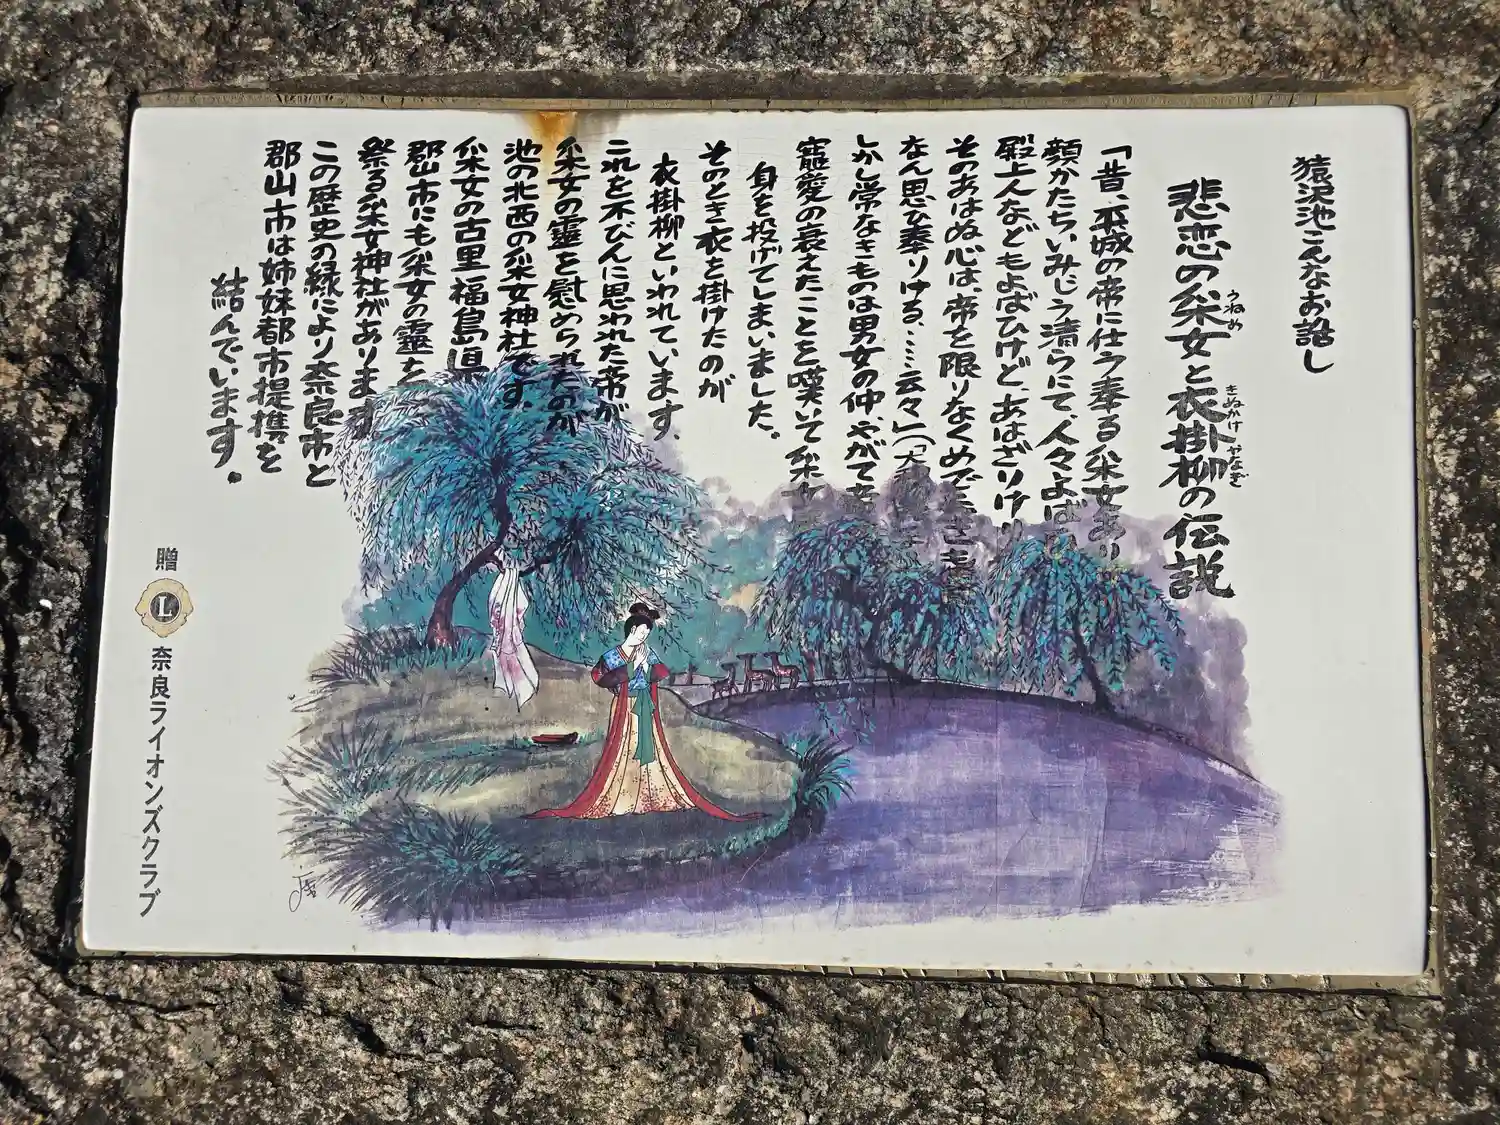 猿沢池こんなお話し
悲恋の采女と衣掛柳の伝説
うねめ
きぬかけ
やなぎ
「昔、平城の帝に仕う奉る采女あり
顔かたちいみじう清らにて、人々よば
殿上人などもよばひけど、あはざりけり
そのあはぬ心は、帝を限りなくめでたき
なん思ひ奉りける、……云々」(「大
しかし常なきものは男女の仲、やがて
寵愛の衰えたことを嘆いて采女
身を投げてしまいました。
そのとき衣を掛けたのが
衣掛柳といわれています。
これを不びんに思われた帝が
采女の霊を慰められたのが
池の北西の采女神社です。
采女の古里福島県
郡山市にも采女の霊を
祭る采女神社があります
この歴史の縁により奈良市と
郡山市は姉妹都市提携を
結んでいます。
贈
L
奈良ライオンズクラブ